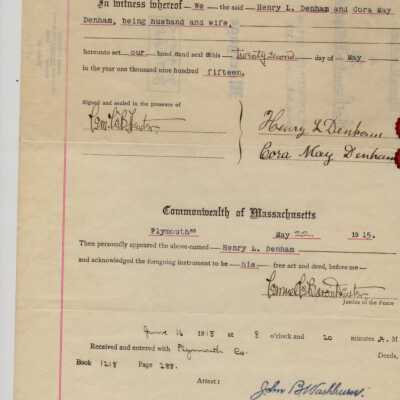 In witness whereof We the said Henry L. Denham and Cora May
Denham, being husband and wife,
hereunto set our hand and seal this twenty second day of May
in the year one thousand nine hundred fifteen.
Signed and sealed in the presence of
Henry L Denham
Cora May Denham
Commonwealth of Massachusetts
Plymouth ss May 22 1915.
Then personally appeared the above-named Henry L. Denham
and acknowledged the foregoing instrument to be his free act and deed, before me
Justice of the Peace
June 16 1915 at 8 o'clock and 20 minutes A. M
Received and entered with Plymouth Co. Deeds,
Book 1218 Page 288.
Attest:
John B Washburn